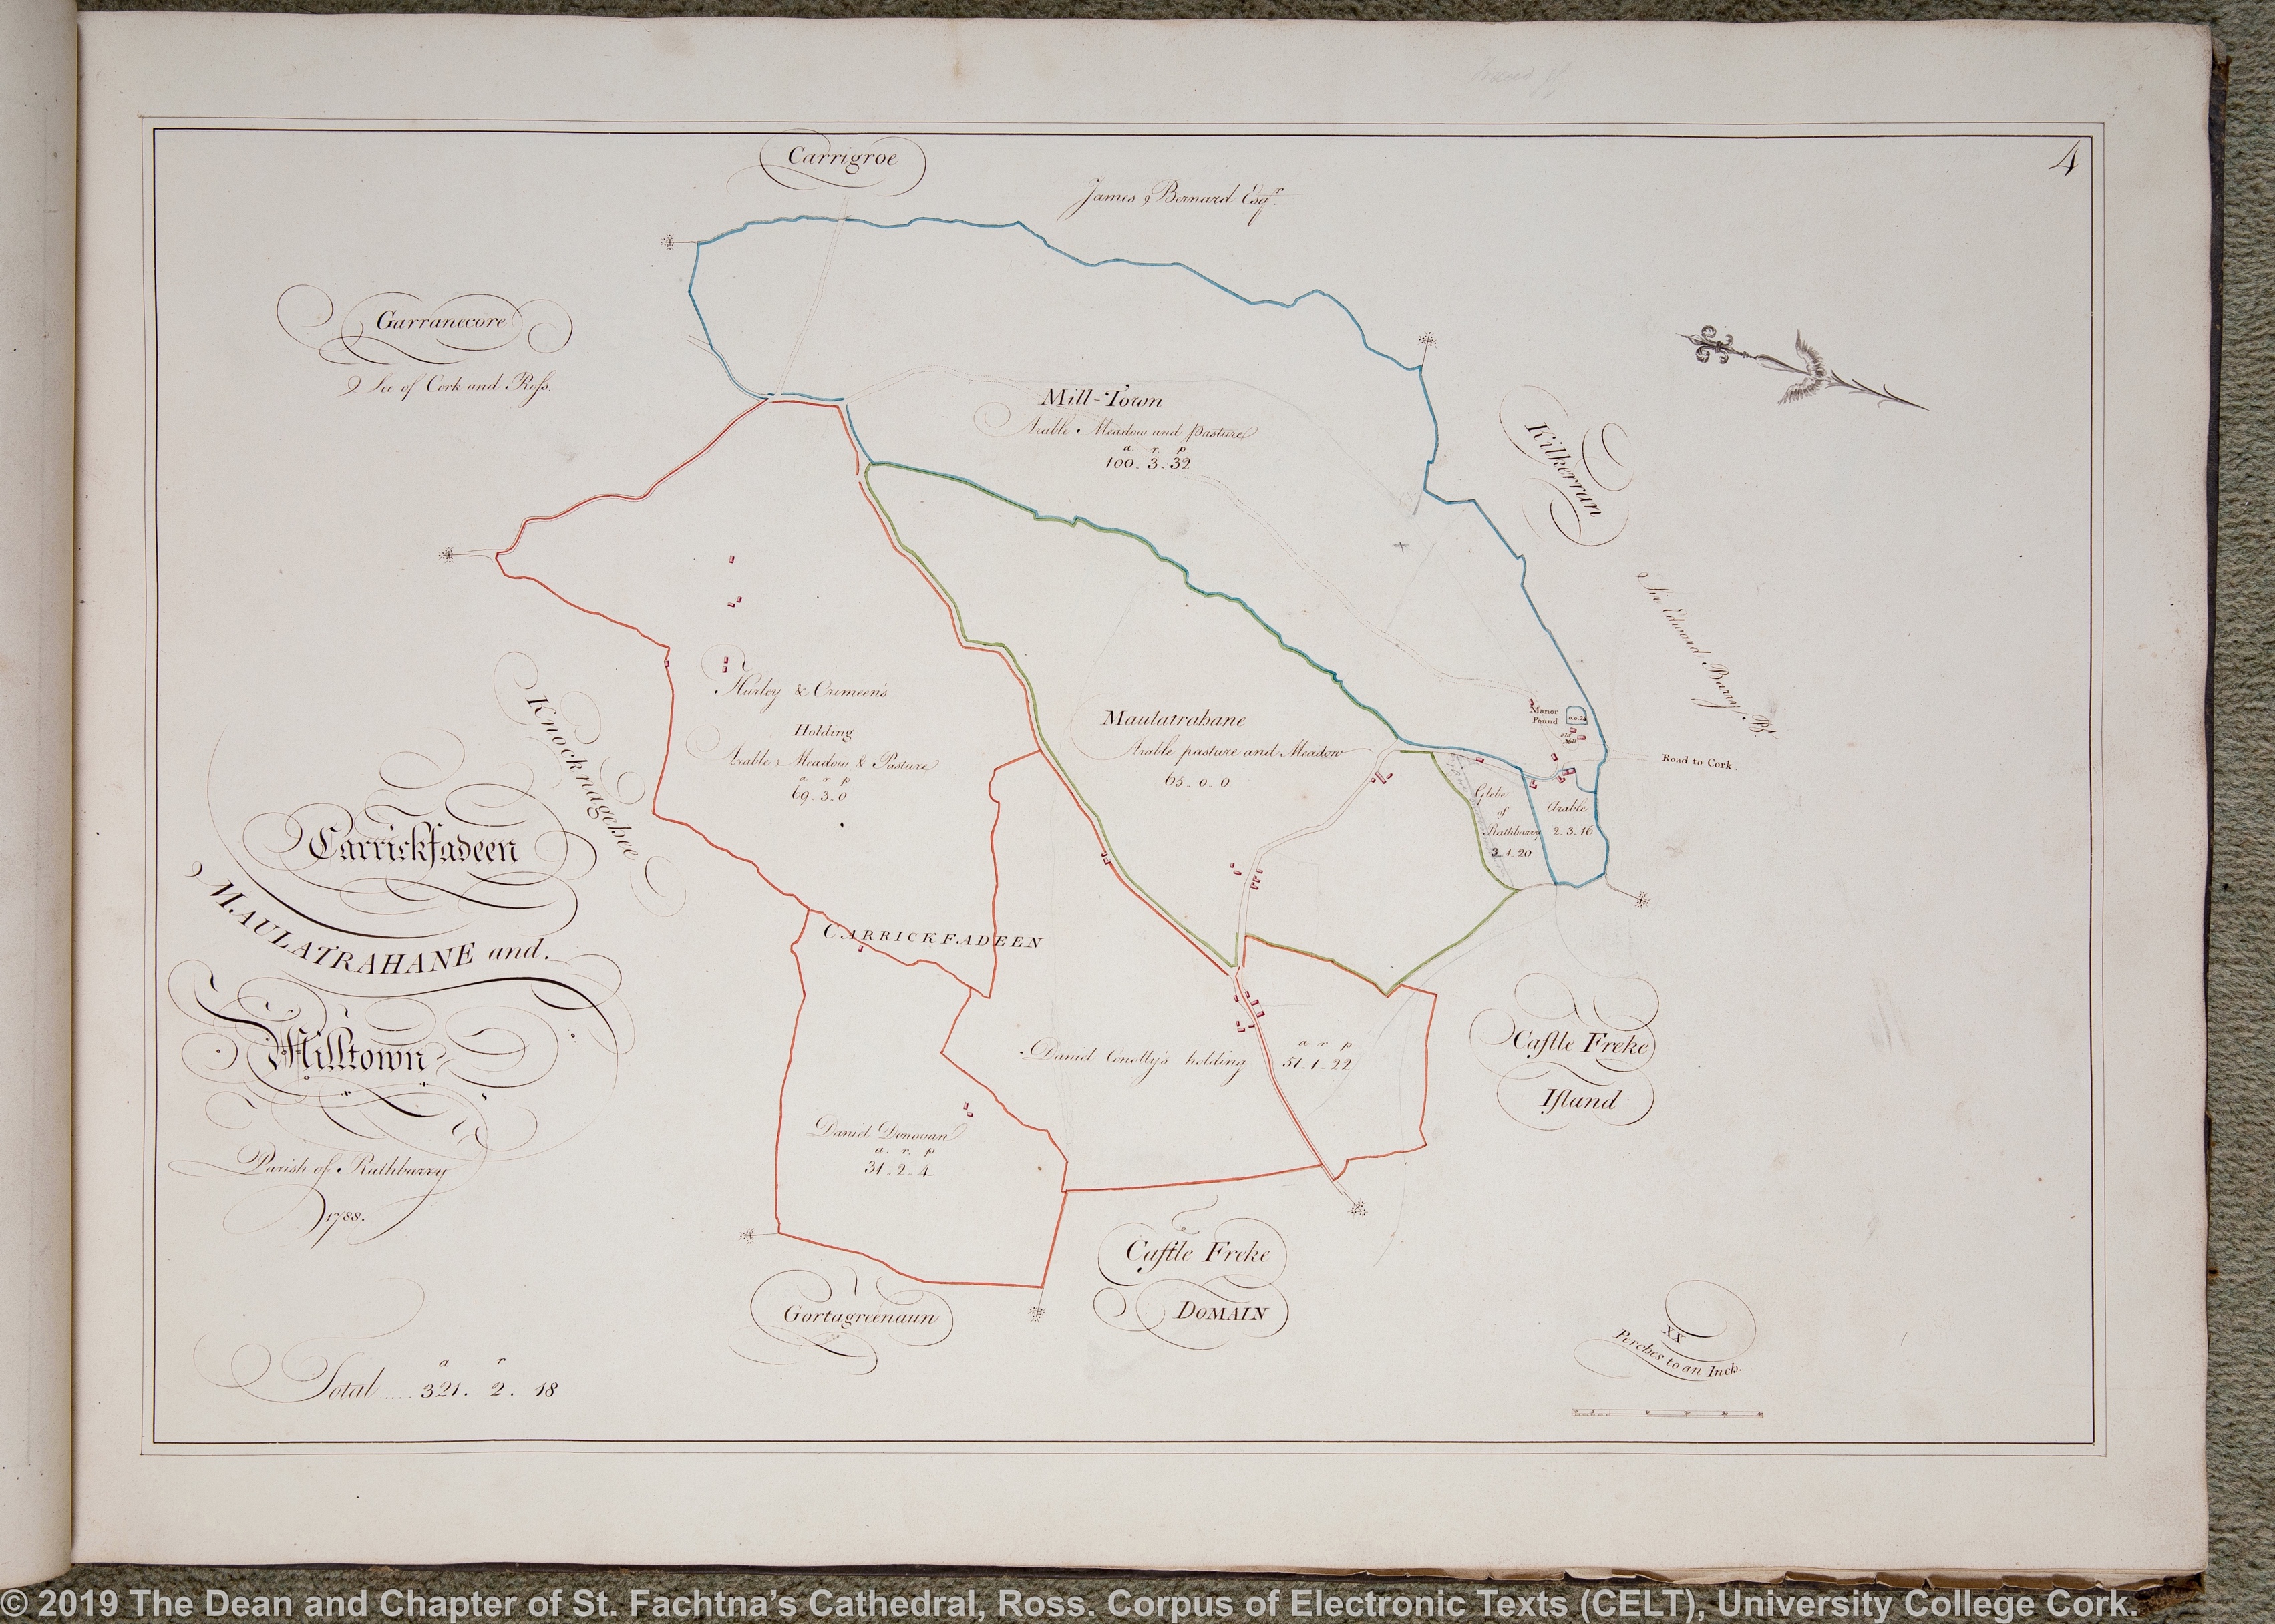 4
Carrigroe
James Bernard Esqr.
Garranecore
See of Cork and Ross.
Mill-Town
Arable Meadow and Pasture
a. r. p
100. 3. 32
Kilkerran
Hurley & Cremeen's
Holding
Arable Meadow & Pasture
a r p
69. 3. 0
Knocknagehee
Maulatrahane
Arable pasture and Meadow
65. 0. 0
Manor
Pound
Road to Cork.
Glebe
of
Rathbarry
3. 1. 20
Arable
2. 3. 16
Carrickfadeen
MAULATRAHANE and.
Milltown
Parish of Rathbarry
1788.
CARRICKFADEEN
Daniel Conolly's holding
a r p
51. 1. 22
Daniel Donovan
a. r. p
31. 2. 4
Castle Freke
Island
Castle Freke
DOMAIN
Gortagreenaun
a r
Total ..... 321. 2. 18
XX
Perches to an Inch.
© 2019 The Dean and Chapter of St. Fachtna’s Cathedral, Ross. Corpus of Electronic Texts (CELT), University College Cork.